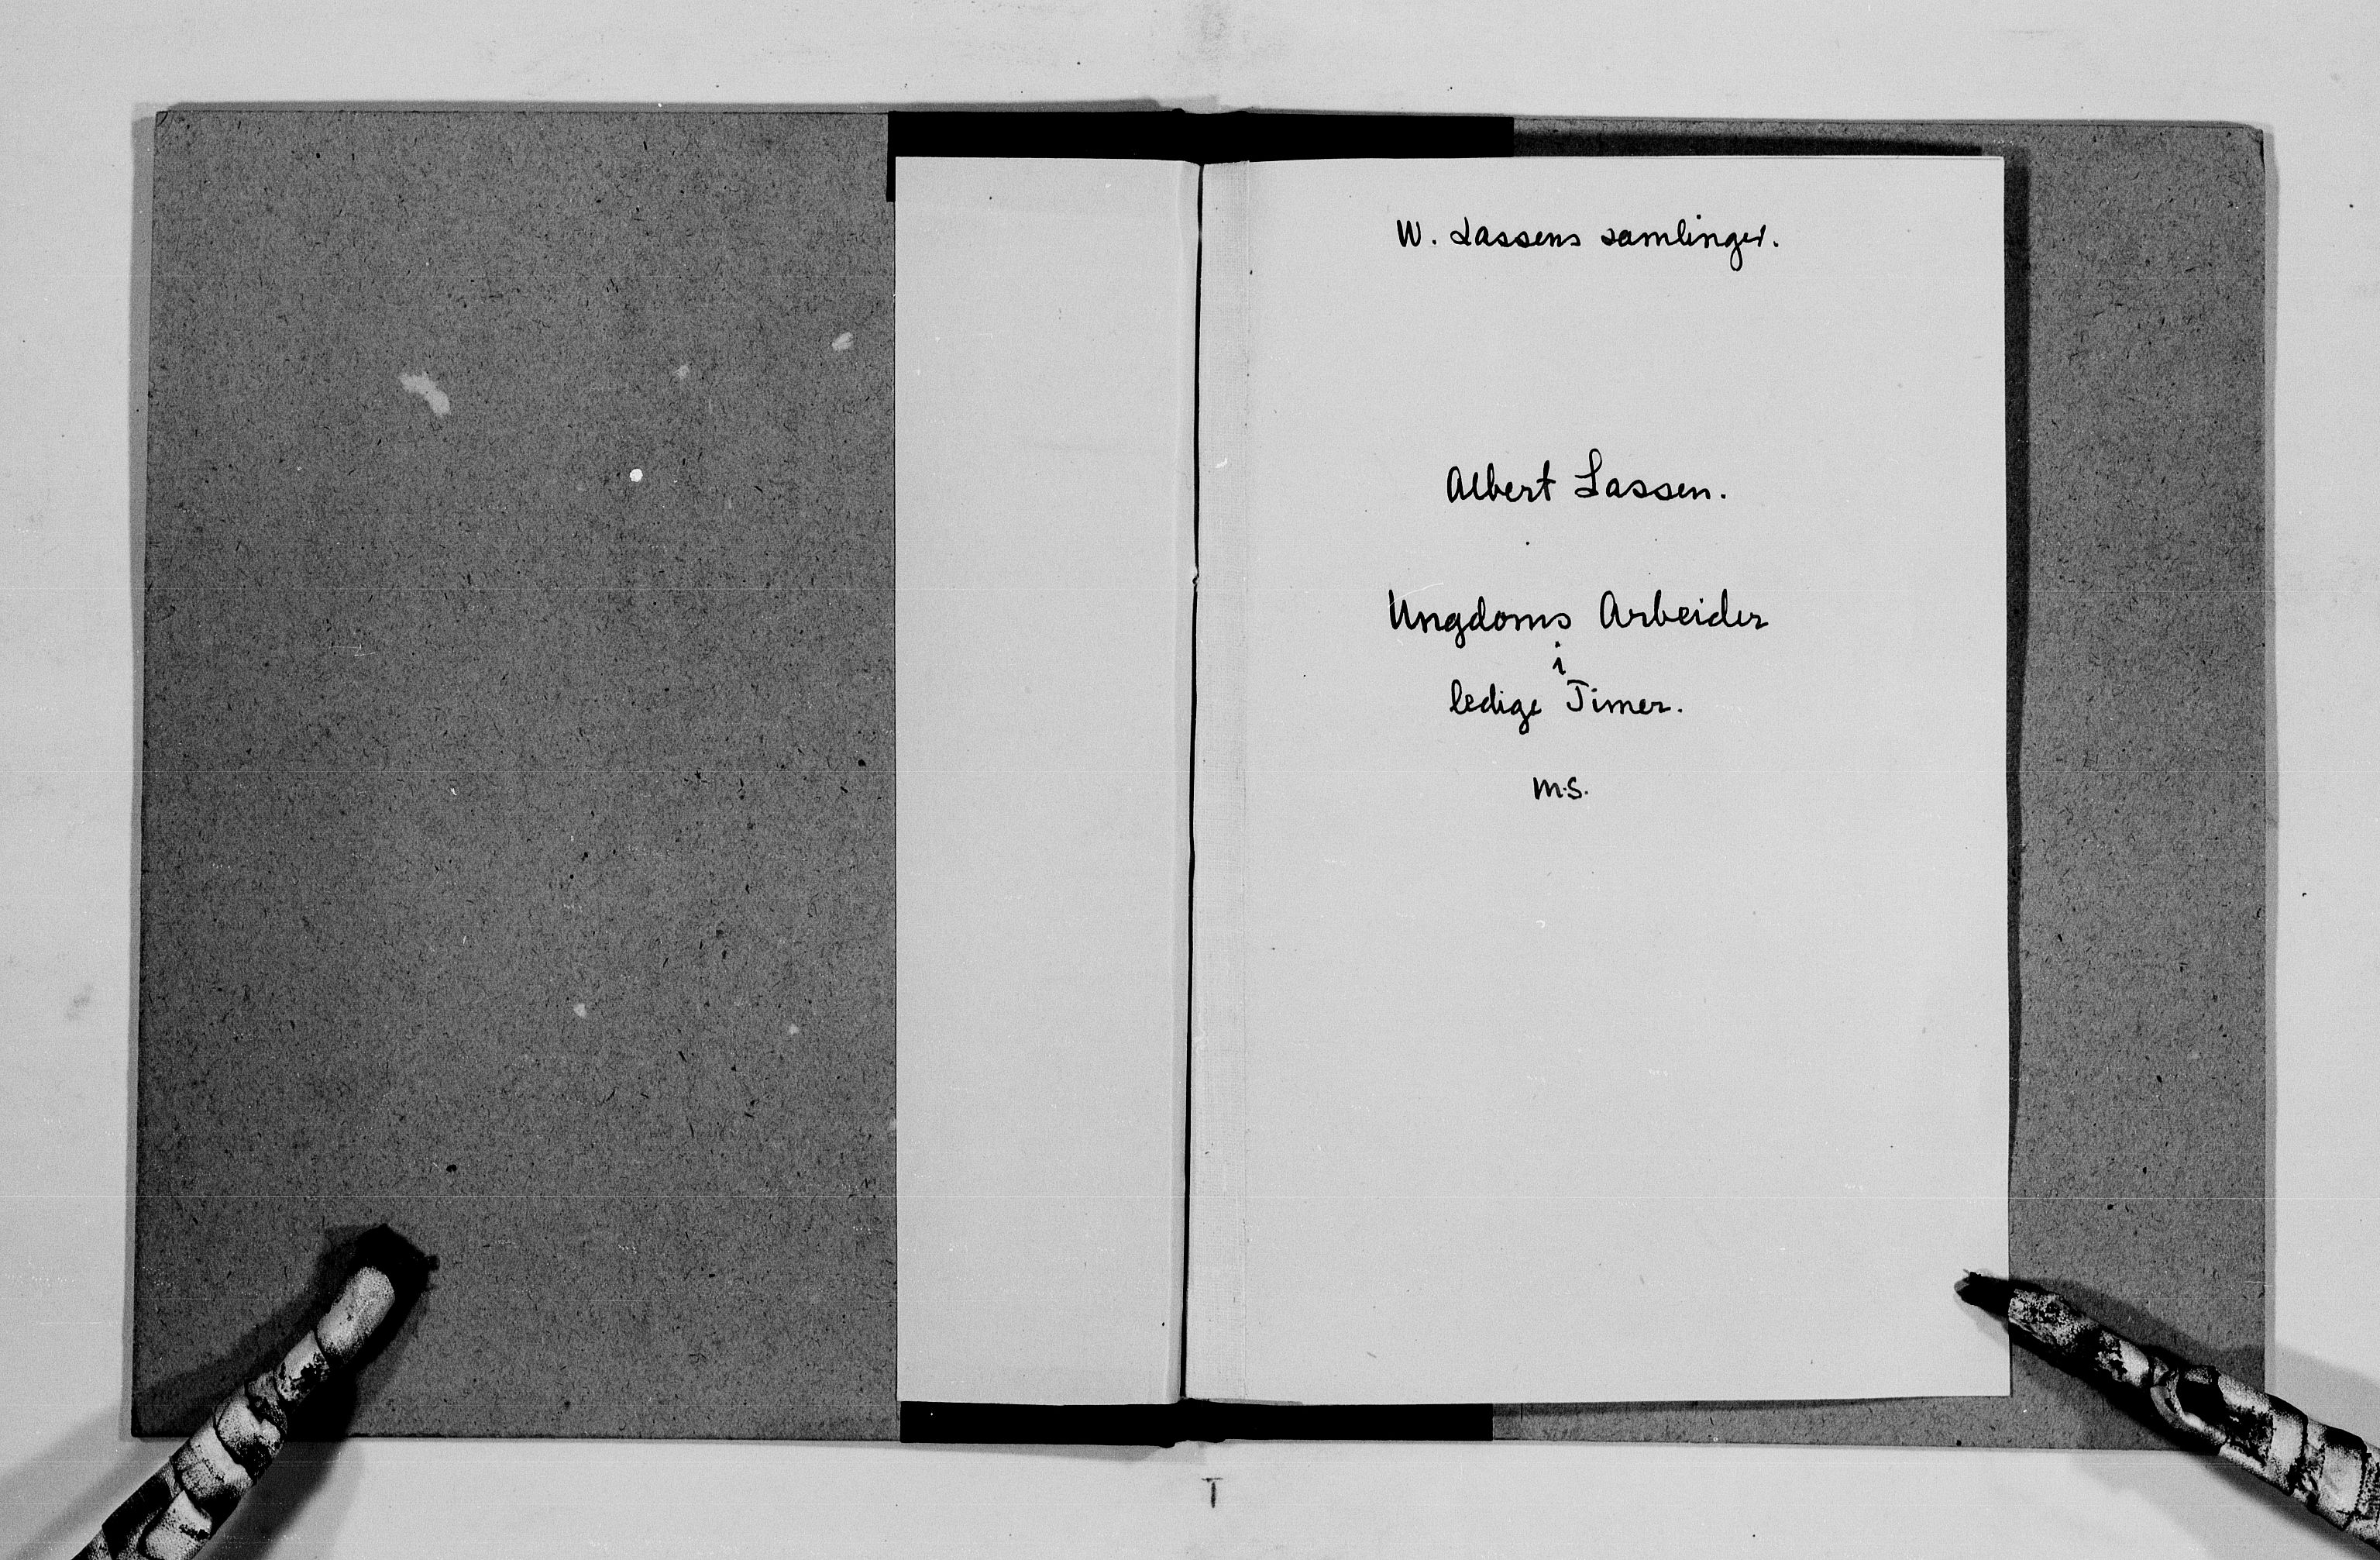 W. Lassens samlinger.
Albert Lassen.
Ungdoms Arbeider
i
ledige Timer.
m.s.
T